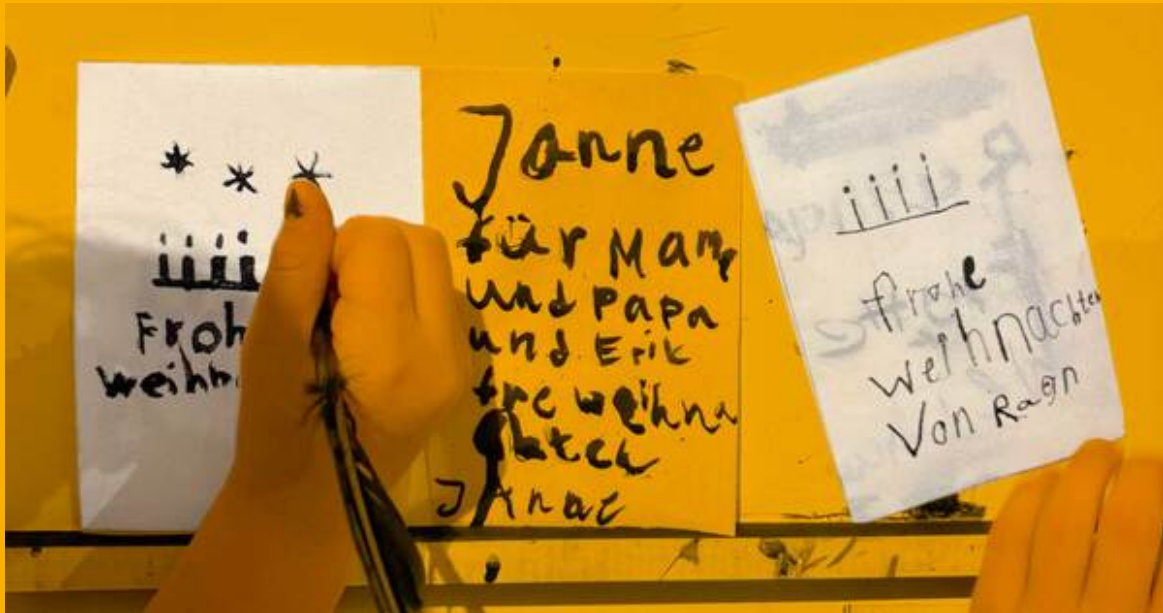 Froh
weihn
Janne
für Mam
und Papa
und Erik
fre weihna
chten
Janne
frohe
weihnachten
Von Ragn